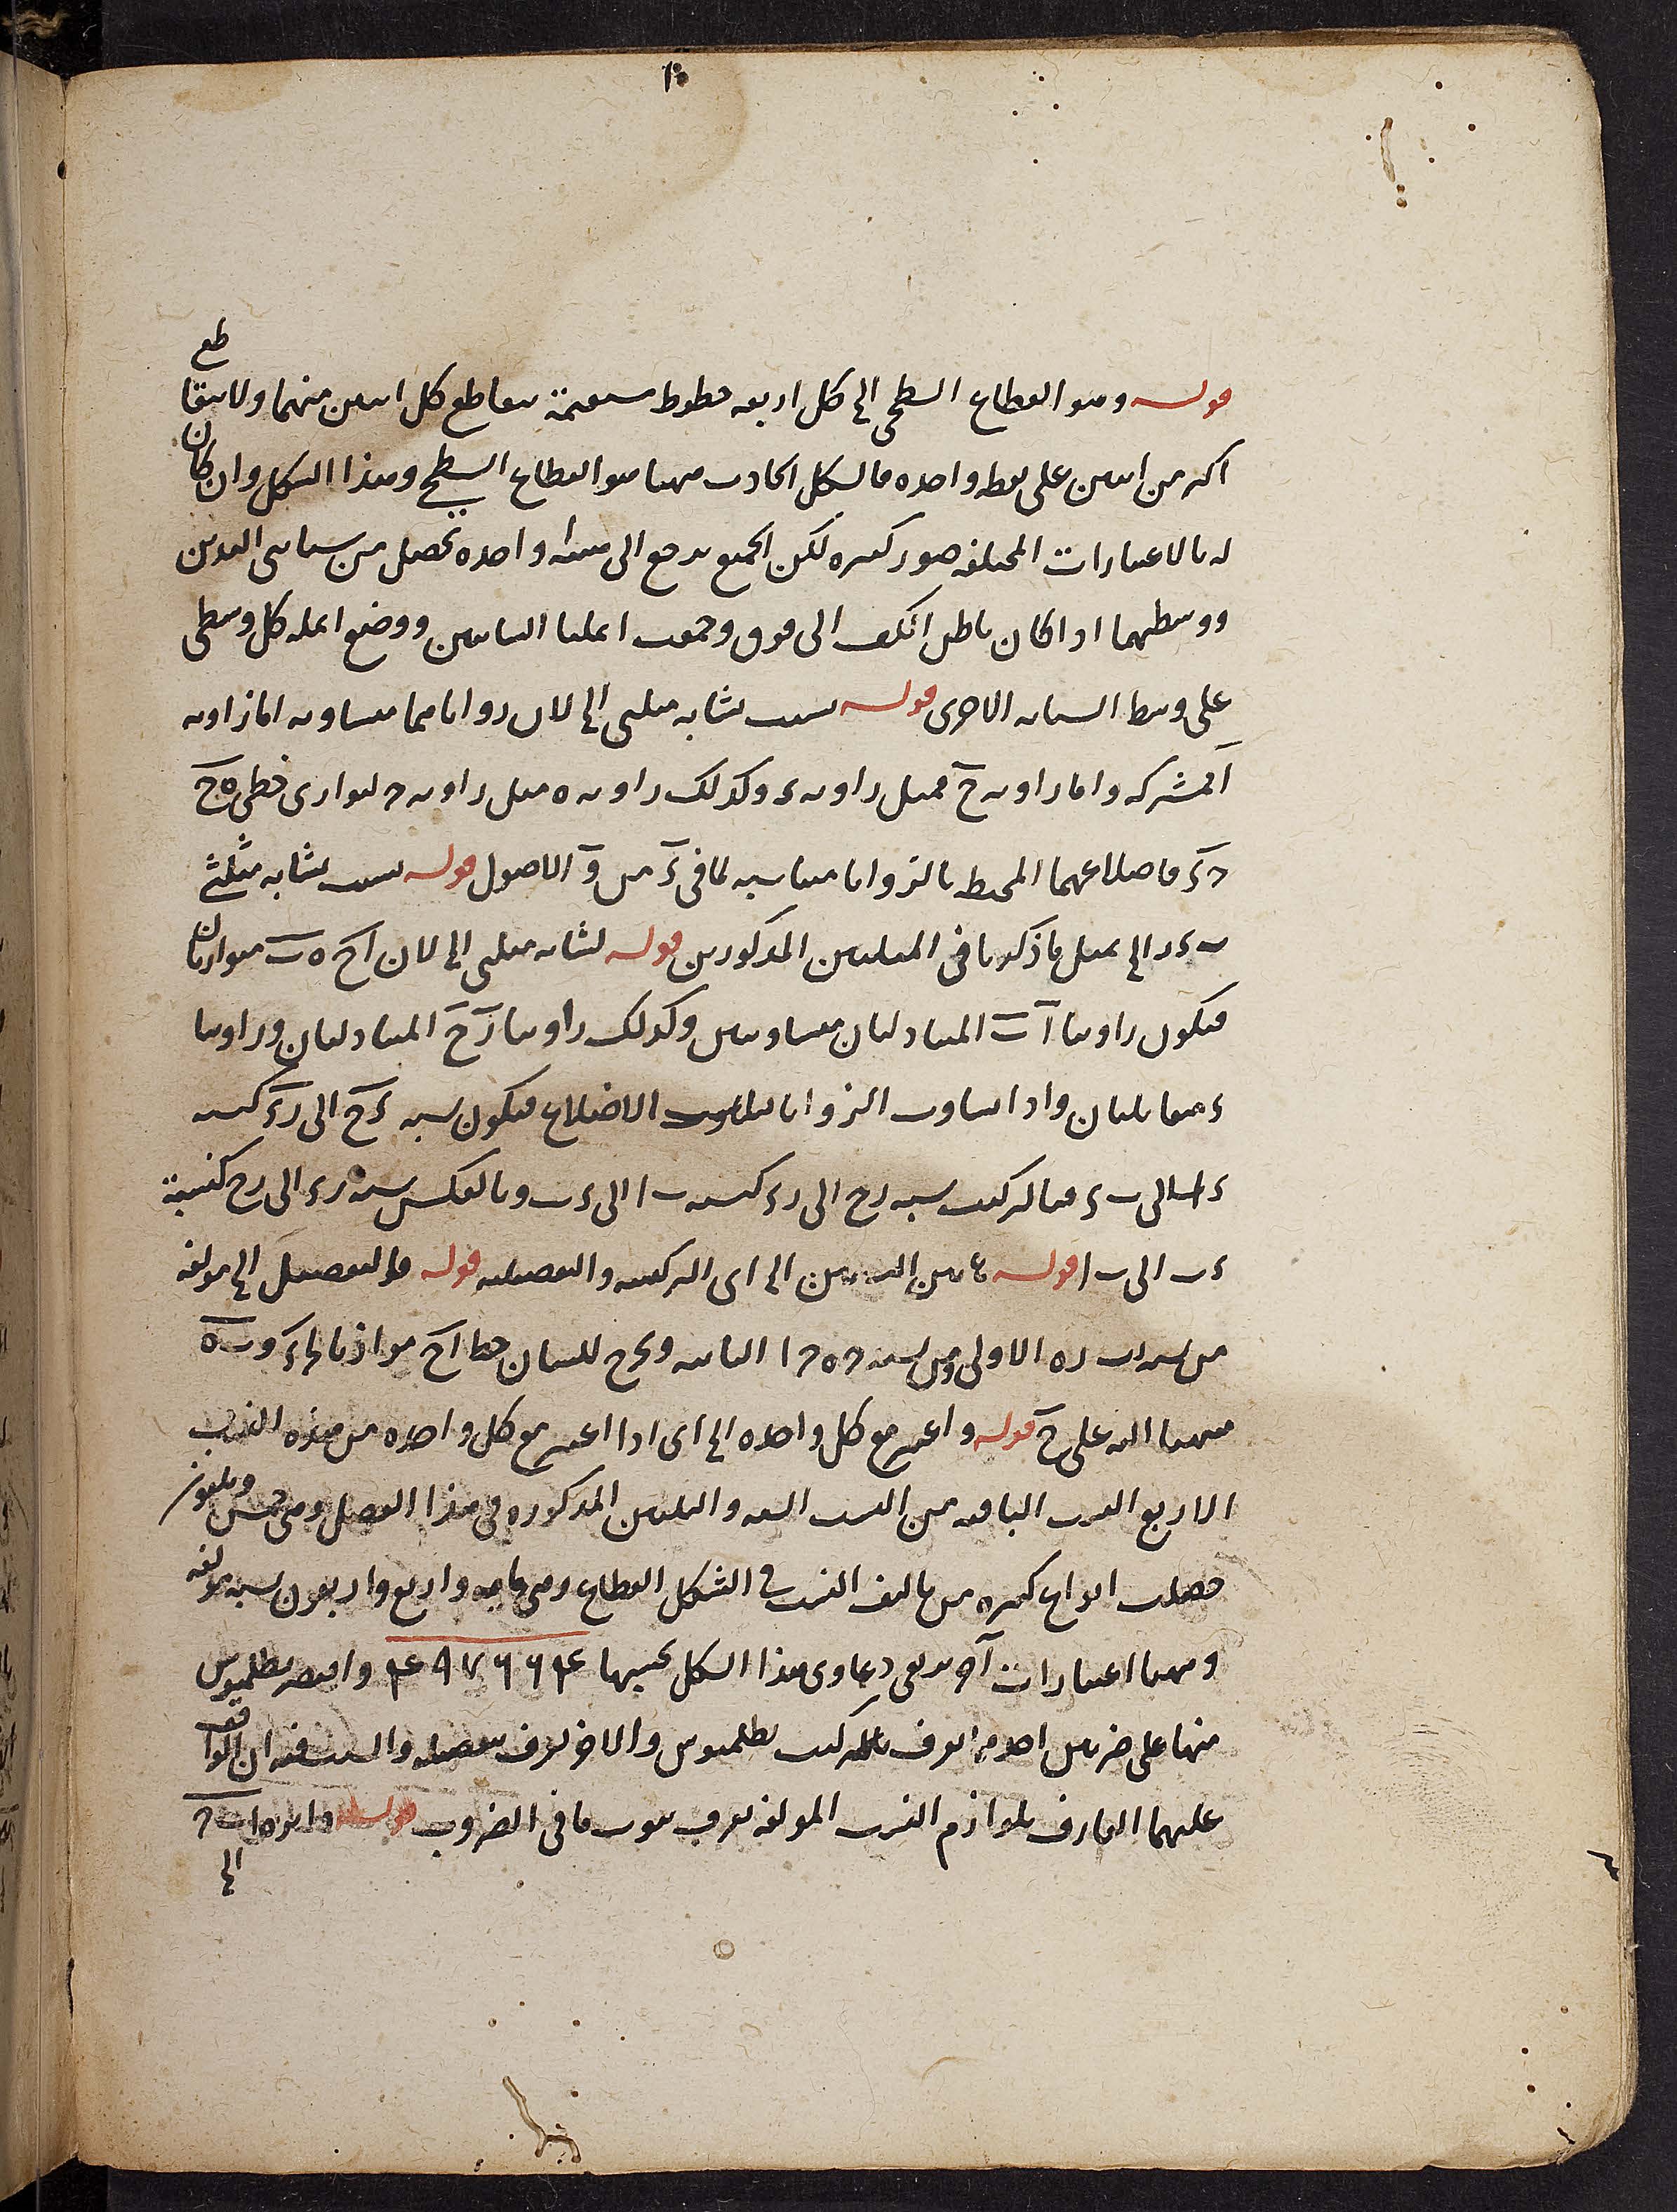 قوله وهو القطاع السطحى الخ كل اربعه خطوط مستقيمة يتقاطع كل اثنين منهما ولا يتقاطع
اكثر من اثنين على نقطه واحده فالشكل الحادث منها هو القطاع السطحى وهذا الشكل وان كان
له بالاعتبارات المختلفه صور كثيره لكن الجميع يرجع الى هيئه واحده تحصل من سبابتى اليدين
ووسطيهما اذا كان باطن الكف الى فوق وجمعت انملتا السبابتين ووضع انمله كل وسطى
على وسط السبابه الاخرى قوله بسبب تشابه مثلثى الخ لان زواياهما متساويه اما زاويه
ا لمشتركه واما زاويه ح فمثل زاويه ء وكذلك زاويه ه مثل زاويه ر لتوازى خطى ه ح
ر ء فاضلاعهما المحيطه بالزوايا متناسبه لما فى ء من و الاصول قوله بسبب تشابه مثلثى
ب ء ر الخ بمثل ما ذكرنا فى المثلثين المذكورين قوله لتشابه مثلثى الخ لان ا ح ه ب متوازيان
فيكون زاويتا ا ب المتبادلتان متساويتين وكذلك زاويتا ر ح المتبادلتان وزاويتا
ء متقابلتان واذا تساوت الزوايا تناسبت الاضلاع فيكون نسبه ء ح الى ر ء كنسبه
ء ا الى ب ء فبالتركيب نسبه ر ح الى ر ء كنسبه ب ا الى ء ب وبالعكس نسبه ر ء الى ر ح كنسبة
ء ب الى ب ا قوله هاتين النسبتين الخ اى التركيبيه والتفصيليه قوله فالتفصيل الخ مولفه
من نسبه ا ب ر ه الاولى ومن نسبه ر ه ر ا الثانيه ويخرج للبيان خط ا ح موازيا لخط ء و ب ه
منهما اليه على ح قوله واعتبر مع كل واحده الخ اى اذا اعتبر مع كل واحده من هذه النسب
الاربع النسب الباقيه من النسب الست والثلثين المذكوره فى هذا الفصل وهى خمس وثلثون
حصلت انواع كثيره من تاليف النسب فى الشكل القطاع وهى مايه واربع واربعون نسبه مولفه
ومنها اعتبارات اخر يرتقى دعاوى هذا الشكل بحسبها ٤٩٧٦٦٤ واقتصر بطلميوس
منها على ضربين احدهما يعرف بتركيب بطلميوس والاخر يعرف بتفصيله والسبب فيه ان الواقف
عليهما العارف بلوازم النسب المولفه يعرف ثبوت ما فى الضروب قوله دايره ا ب ر
الخ